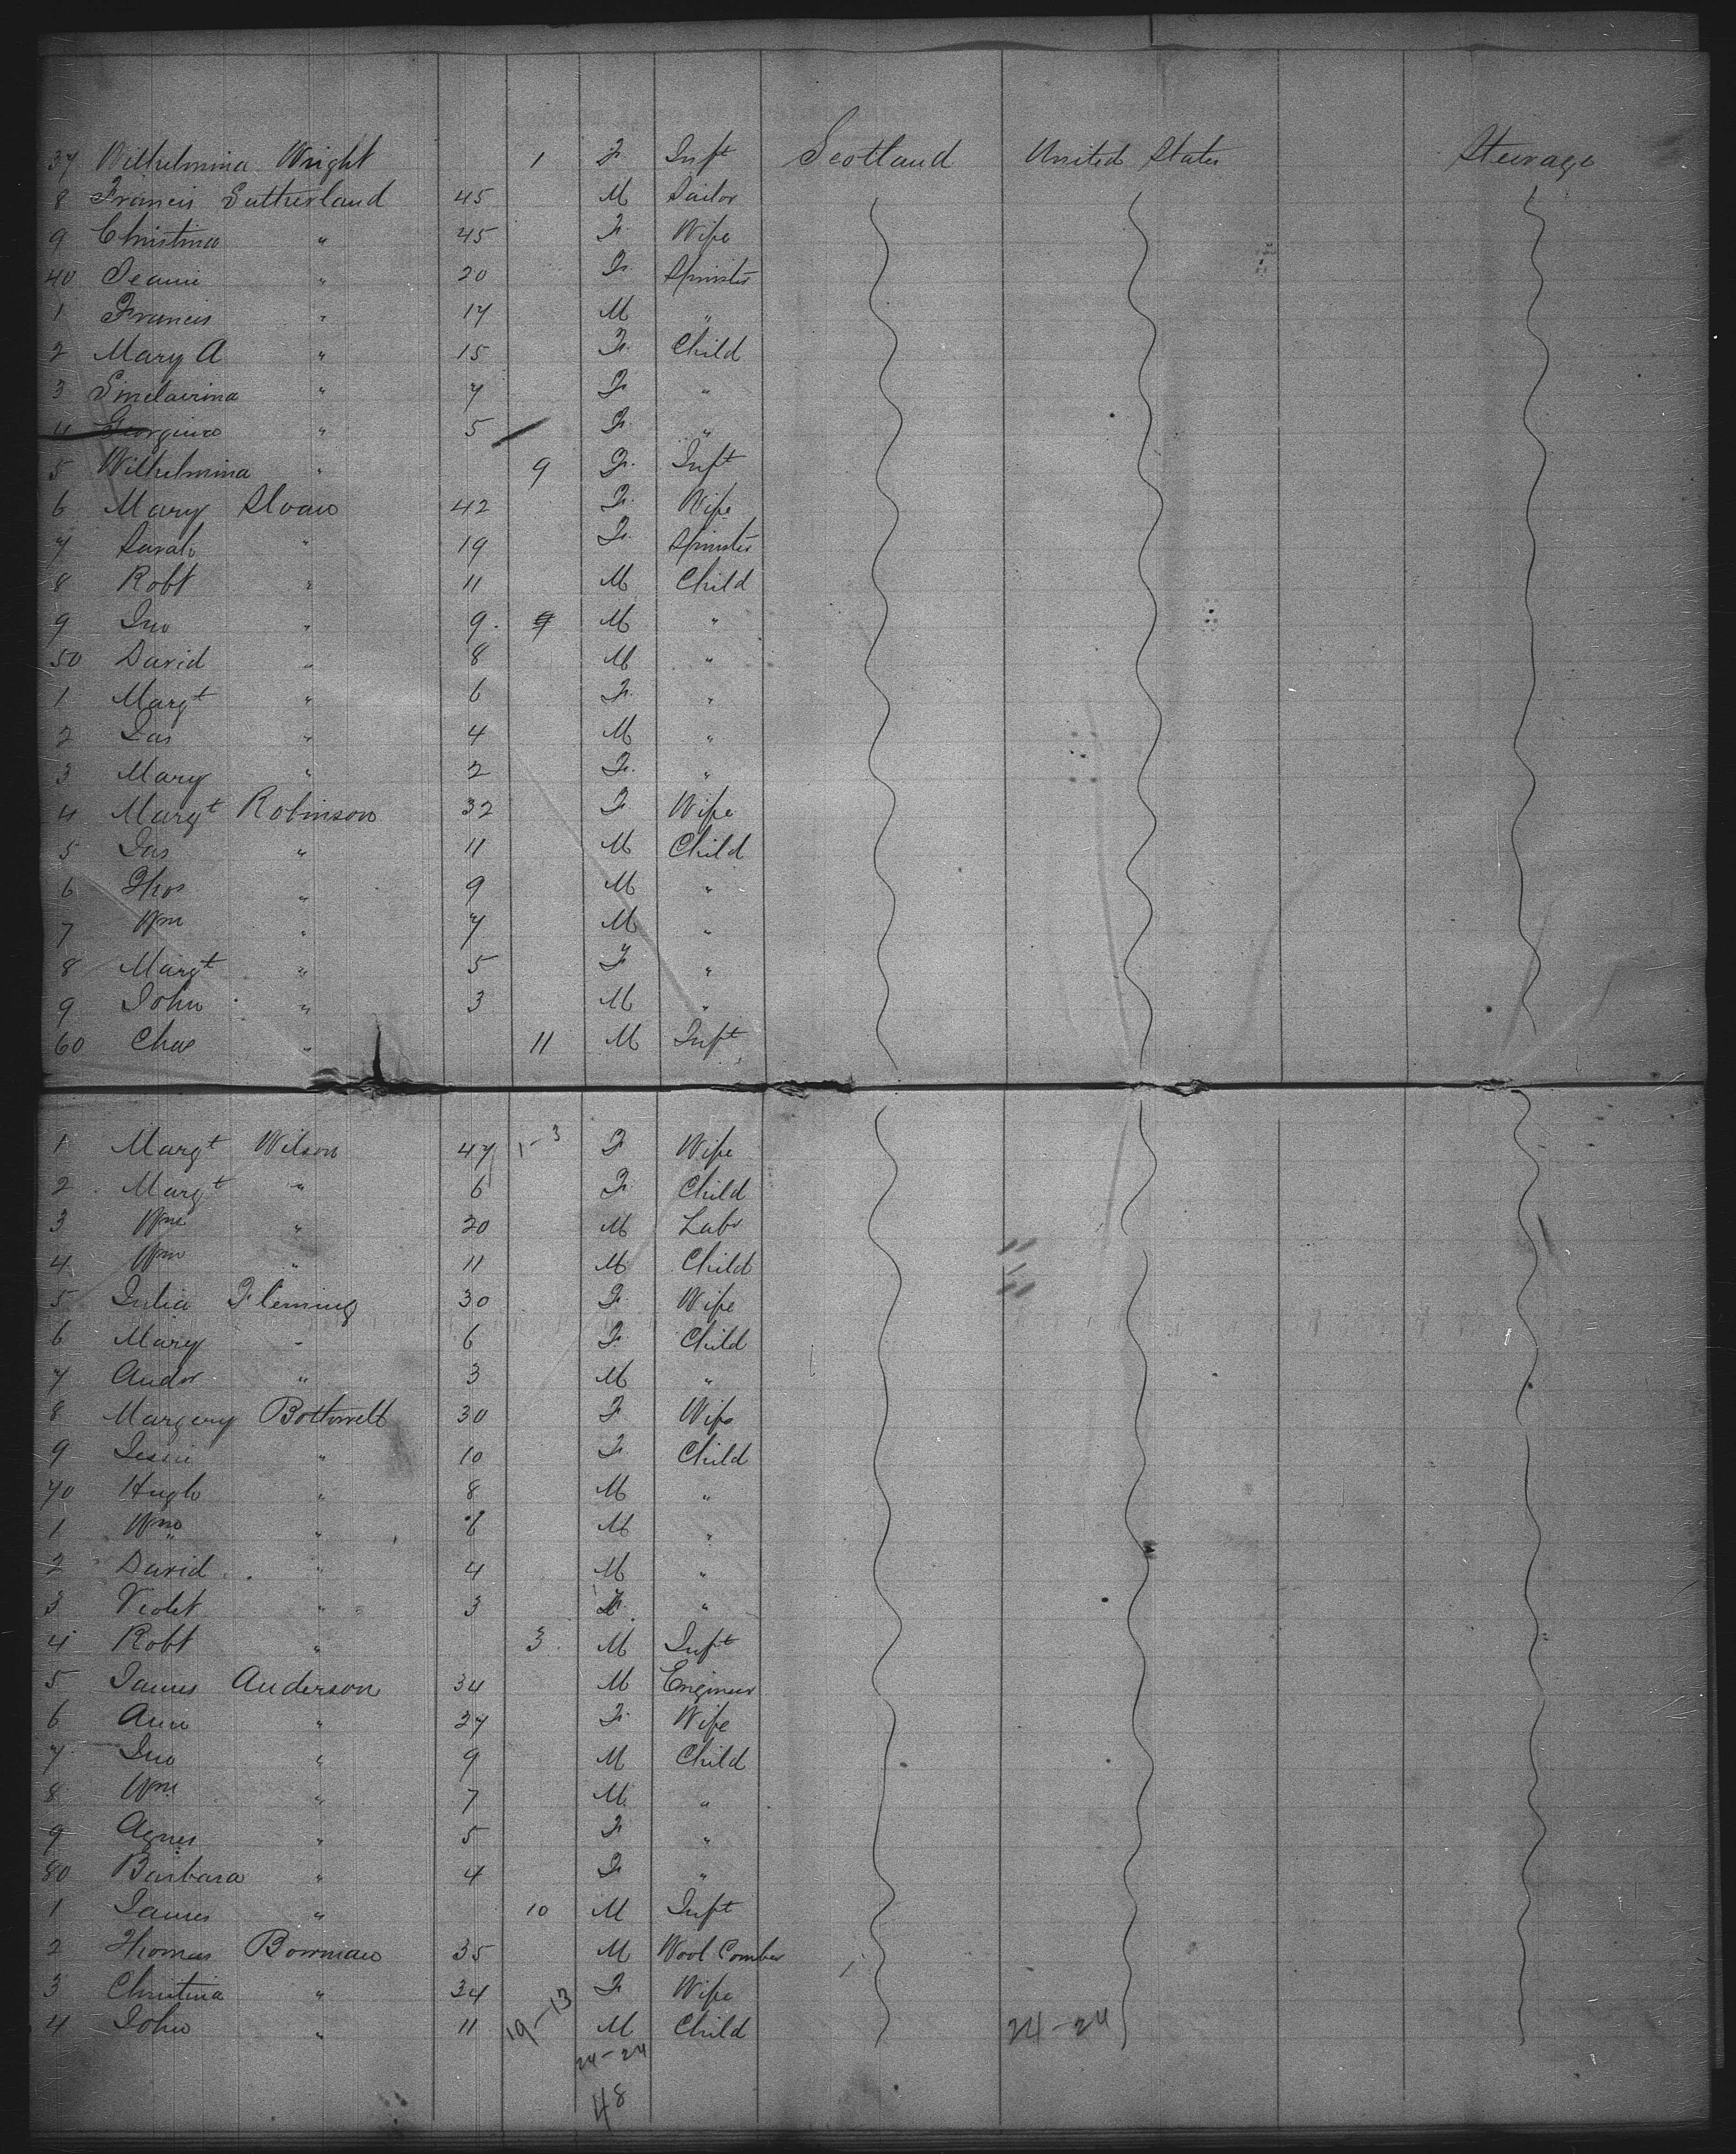 37 Wilhelmina Wright 1 F Inft Scotland United States Steerage
8 Francis Sutherland 45 M Sailor
9 Christina " 45 F. Wife
40 Jeanie " 20 F. Spinster
1 Francis " 17 M "
2 Mary A " 15 F. Child
3 Sinclairina " 7 F "
4 Georgina " 5 F. "
5 Wilhelmina " 9 F. Inft
6 Mary Sloan 42 F. Wife
7 Sarah " 19 F. Spinster
8 Robt " 11 M Child
9 Jno " 9. 9 M "
50 David " 8 M "
1 Margt " 6 F. "
2 Jas " 4 M "
3 Mary " 2 F. "
4 Margt Robinson 32 F Wife
5 Jas " 11 M Child
6 Thos " 9 M "
7 Wm " 7 M "
8 Margt " 5 F "
9 John " 3 M "
60 Chas " 11 M Inft
1 Margt Wilson 47 1-3 F Wife
2 Margt " 6 F. Child
3 Wm " 20 M Labr
4 Wm " 11 M Child
5 Julia Fleming 30 F. Wife
6 Mary " 6 F. Child
7 Andw " 3 M "
8 Margery Bothwell 30 F Wife
9 Jessie " 10 F. Child
70 Hugh " 8 M "
1 Wm " 6 M "
2 David " 4 M "
3 Violet " 3 F. "
4 Robt " 3 M Inft
5 James Anderson 34 M Engineer
6 Ann " 27 F. Wife
7 Jno " 9 M Child
8 Wm " 7 M. "
9 Agnes " 5 F "
80 Barbara " 4 F "
1 James " 10 M Inft
2 Thomas Bowman 35 M Wool Comber
3 Christina " 34 F Wife
4 John " 11 19-13 M Child 24-24
24-24
48